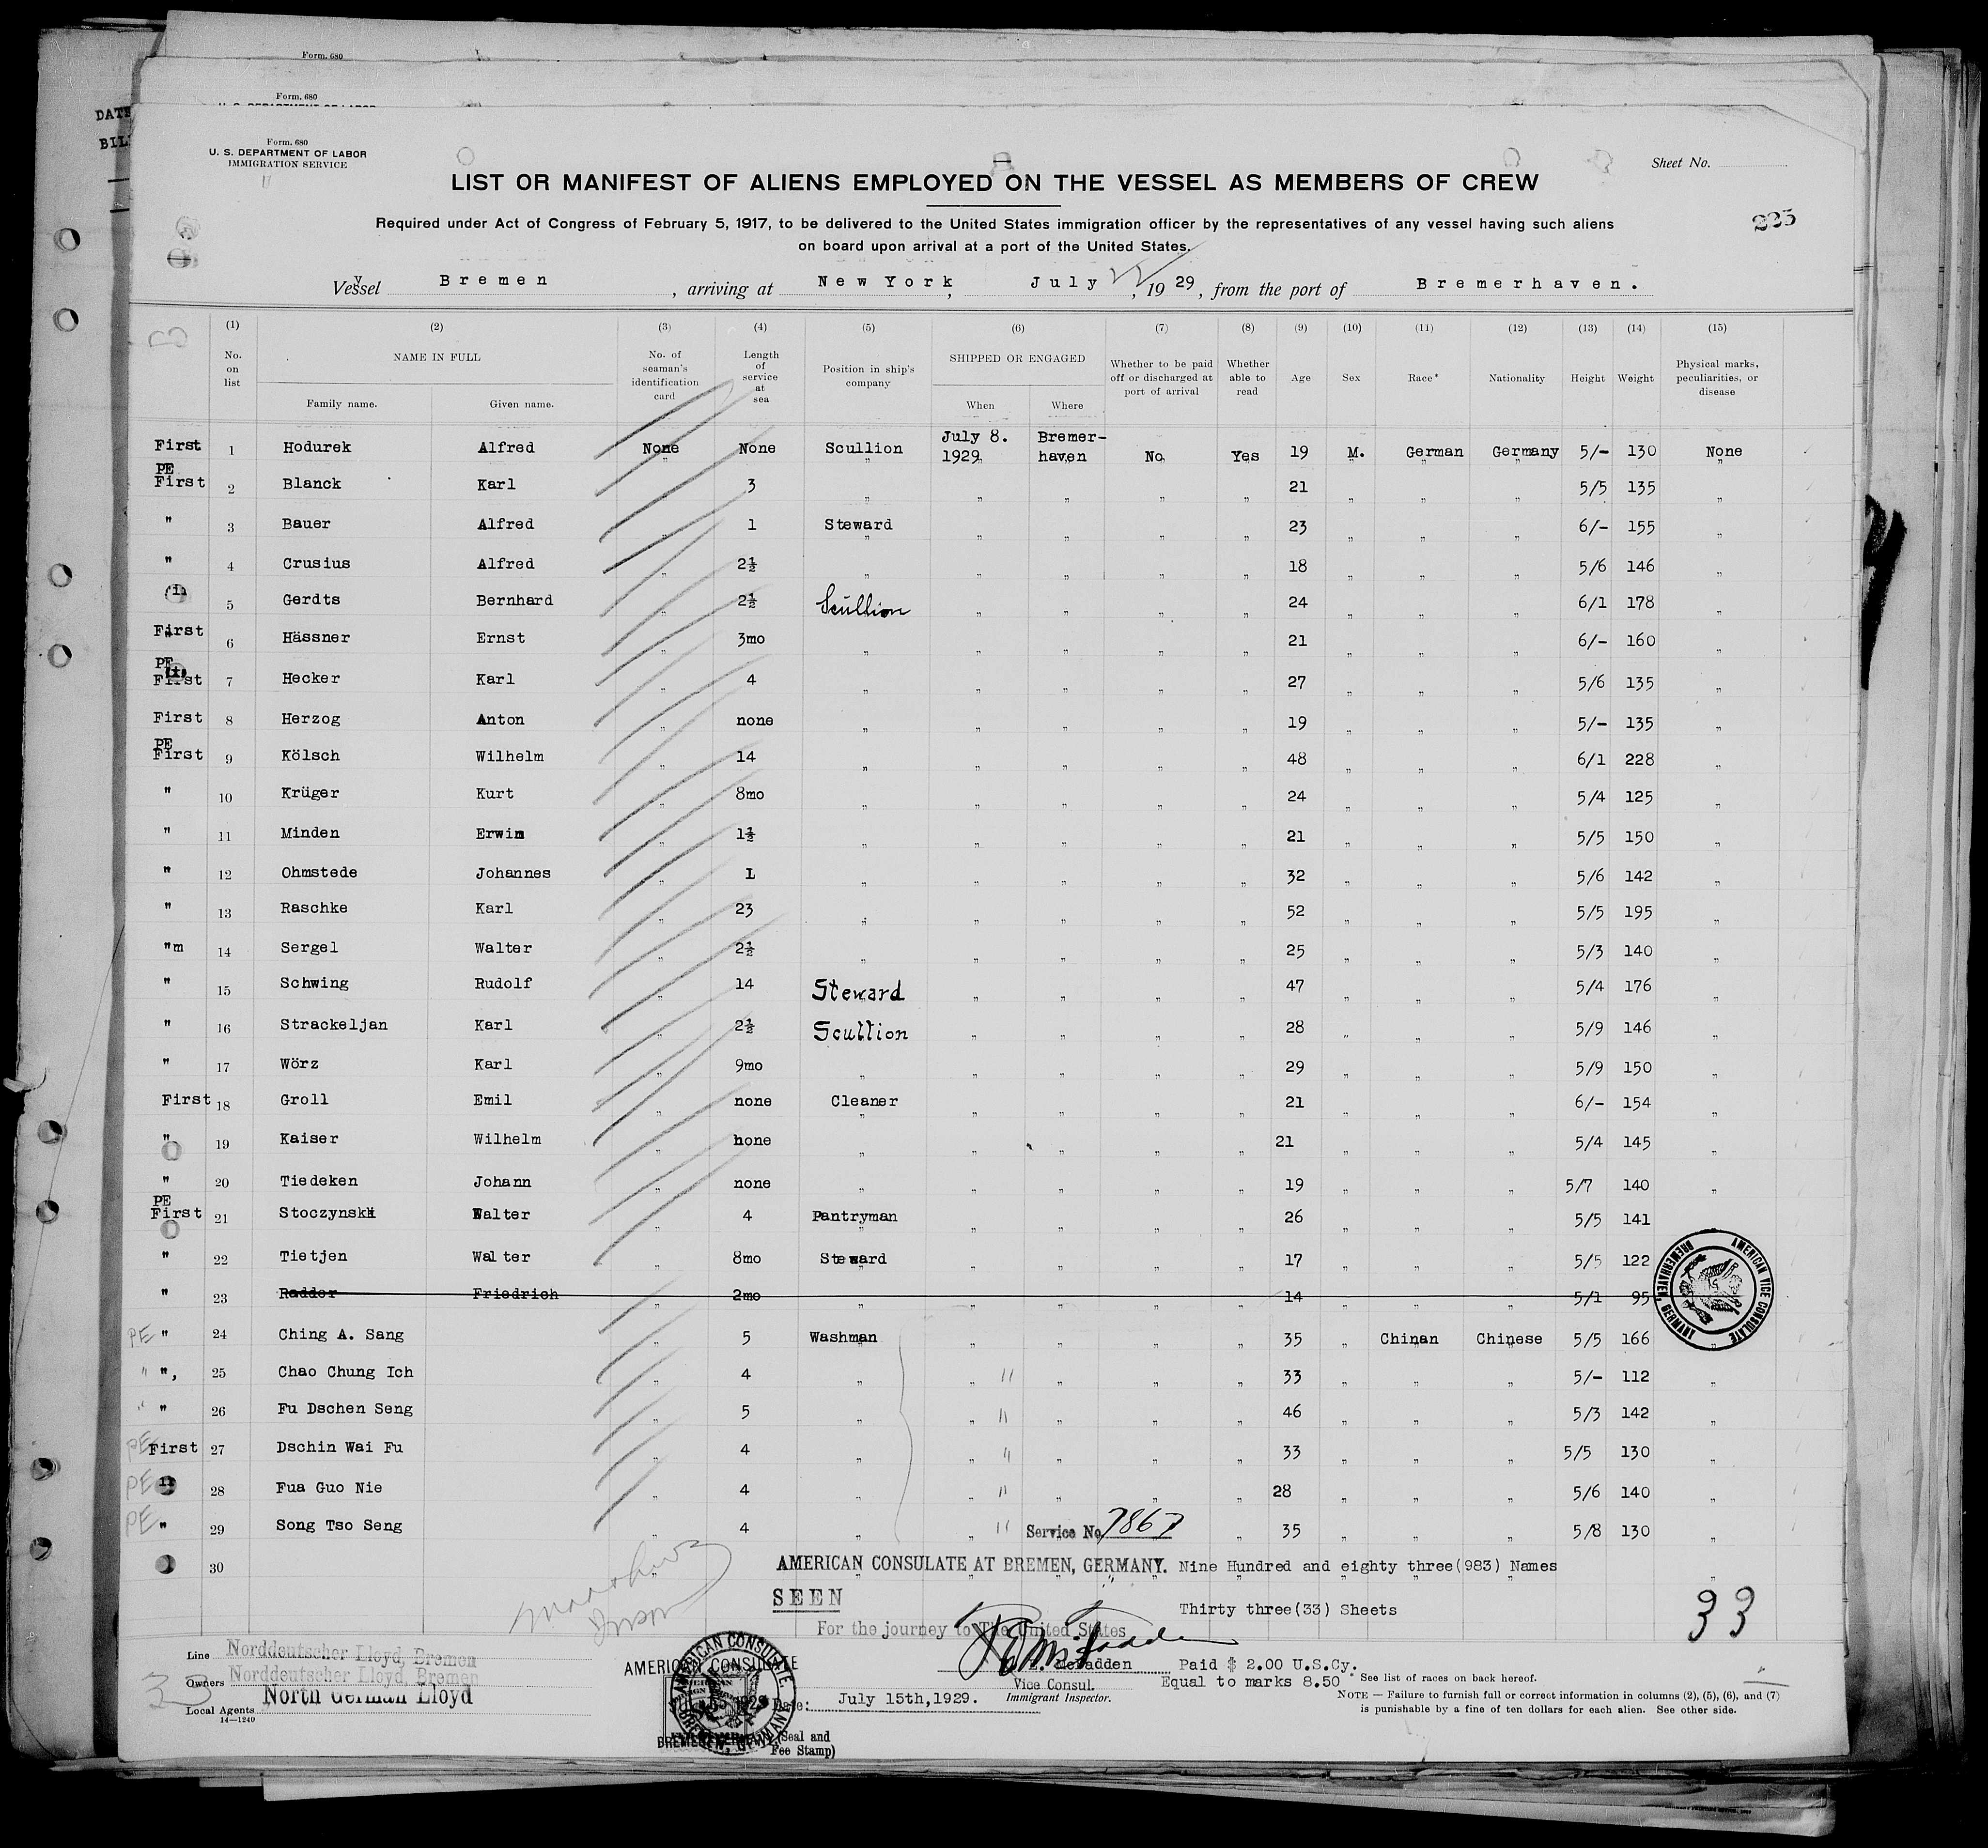 Form. 680
Form. 680
DATE
Form. 680
U. S. DEPARTMENT OF LABOR
IMMIGRATION SERVICE
Sheet No.
LIST OR MANIFEST OF ALIENS EMPLOYED ON THE VESSEL AS MEMBERS OF CREW
225
Required under Act of Congress of February 5, 1917, to be delivered to the United States immigration officer by the representatives of any vessel having such aliens
on board upon arrival at a port of the United States.
Vessel Bremen, arriving at New York, July 22, 1929, from the port of Bremerhaven.
(1) (2) (3) (4) (5) (6) (7) (8) (9) (10) (11) (12) (13) (14) (15)
No. on list NAME IN FULL No. of seaman's identification card Length of service at sea Position in ship's company SHIPPED OR ENGAGED Whether to be paid off or discharged at port of arrival Whether able to read Age Sex Race* Nationality Height Weight Physical marks, peculiarities, or disease
Family name. Given name. When Where
First 1 Hodurek Alfred None None Scullion July 8. 1929 Bremerhaven No Yes 19 M. German Germany 5/- 130 None
PE First 2 Blanck Karl " 3 " " " " " 21 " " " 5/5 135 "
" 3 Bauer Alfred " 1 Steward " " " " 23 " " " 6/- 155 "
" 4 Crusius Alfred " 2½ " " " " " 18 " " " 5/6 146 "
5 Gerdts Bernhard " 2½ Scullion " " " " 24 " " " 6/1 178 "
First 6 Hässner Ernst " 3mo " " " " " 21 " " " 6/- 160 "
PE First 7 Hecker Karl " 4 " " " " " 27 " " " 5/6 135 "
First 8 Herzog Anton " none " " " " " 19 " " " 5/- 135 "
PE First 9 Kölsch Wilhelm " 14 " " " " " 48 " " " 6/1 228 "
" 10 Krüger Kurt " 8mo " " " " " 24 " " " 5/4 125 "
" 11 Minden Erwin " 1½ " " " " " 21 " " " 5/5 150 "
" 12 Ohmstede Johannes " 1 " " " " " 32 " " " 5/6 142 "
" 13 Raschke Karl " 23 " " " " " 52 " " " 5/5 195 "
"m 14 Sergel Walter " 2½ " " " " " 25 " " " 5/3 140 "
" 15 Schwing Rudolf " 14 Steward " " " " 47 " " " 5/4 176 "
" 16 Strackeljan Karl " 2½ Scullion " " " " 28 " " " 5/9 146 "
" 17 Wörz Karl " 9mo " " " " " 29 " " " 5/9 150 "
First 18 Groll Emil " none Cleaner " " " " 21 " " " 6/- 154 "
" 19 Kaiser Wilhelm " none " " " " " 21 " " " 5/4 145 "
" 20 Tiedeken Johann " none " " " " " 19 " " " 5/7 140 "
PE First 21 Stoczynski Walter " 4 Pantryman " " " " 26 " " " 5/5 141
" 22 Tietjen Walter " 8mo Steward " " " " 17 " " " 5/5 122
" 23 Radder Friedrich " 2mo " " " " " 14 " " " 5/1 95
PE " 24 Ching A. Sang " 5 Washman " " " " 35 " Chinan Chinese 5/5 166 "
" ", 25 Chao Chung Ich " 4 " " " " " 33 " " " 5/- 112 "
" " 26 Fu Dschen Seng " 5 " " " " " 46 " " " 5/3 142 "
PE First 27 Dschin Wai Fu " 4 " " " " " 33 " " " 5/5 130 "
PE " 28 Fua Guo Nie " 4 " " " " " 28 " " " 5/6 140 "
PE " 29 Song Tso Seng " 4 " " Service No. 7867 " 35 " " " 5/8 130 "
30 AMERICAN CONSULATE AT BREMEN, GERMANY. Nine Hundred and eighty three(983) Names
SEEN
Thirty three(33) Sheets
33
For the journey to The United States
AMERICAN VICE CONSULATE
BREMERHAVEN, GERMANY
Line Norddeutscher Lloyd, Bremen
Owners Norddeutscher Lloyd, Bremen
33
Local Agents North German Lloyd
14—1240
AMERICAN CONSULATE
AMERICAN CONSULATE
BREMEN, GERMANY
McFadden
Vice Consul.
Date: July 15th, 1929. Immigrant Inspector.
(Seal and
Fee Stamp)
Paid $ 2.00 U.S.Cy.
Equal to marks 8.50
* See list of races on back hereof.
NOTE — Failure to furnish full or correct information in columns (2), (5), (6), and (7)
is punishable by a fine of ten dollars for each alien. See other side.